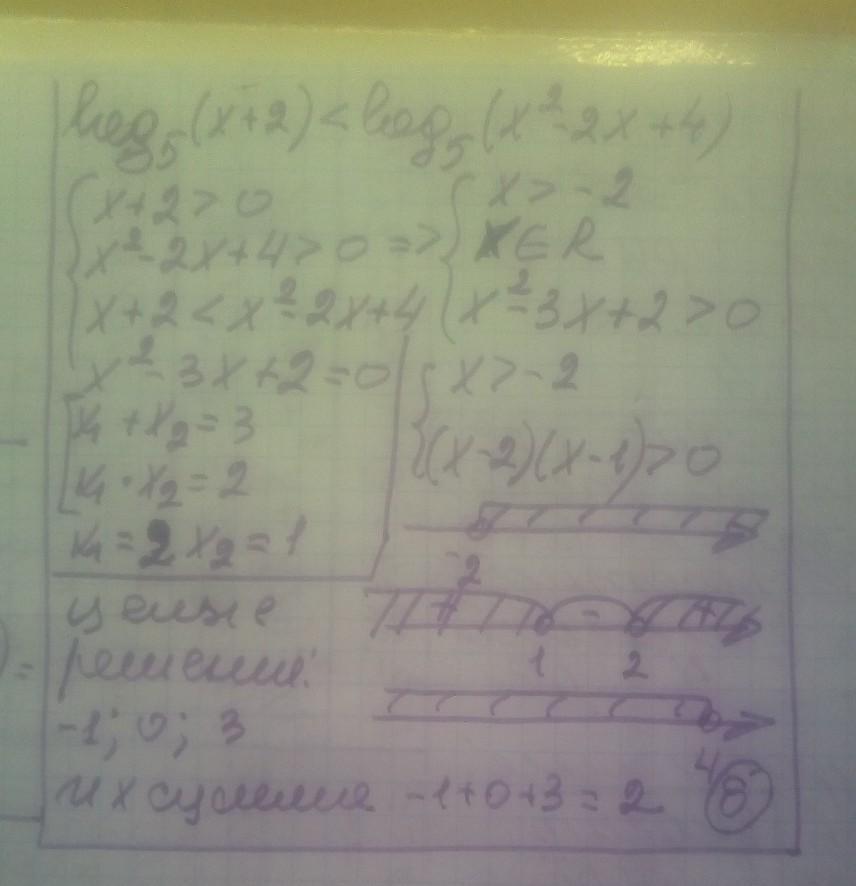 log₅(x+2) < log₅(x²-2x+4)
{ x+2>0
x²-2x+4>0 =>
x+2<x²-2x+4
{ x>-2
x∈R
x²-3x+2>0
x²-3x+2=0
[ x₁+x₂=3
x₁·x₂=2
x₁=2 x₂=1
{ x>-2
(x-2)(x-1)>0
-2
+ - +
1 2
4
целые
решения:
-1; 0; 3
их сумма -1+0+3=2